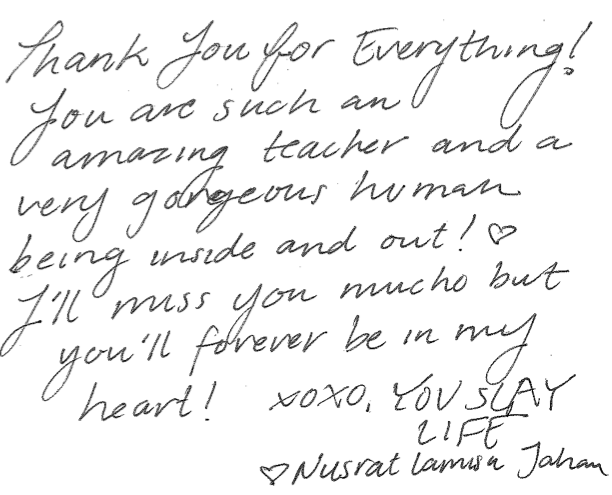 Thank You for Everything!
You are such an
amazing teacher and a
very gorgeous human
being inside and out! ♡
I'll miss you mucho but
you'll forever be in my
heart! xoxo, YOU SLAY
LIFE
♡ Nusrat Lamisa Jahan